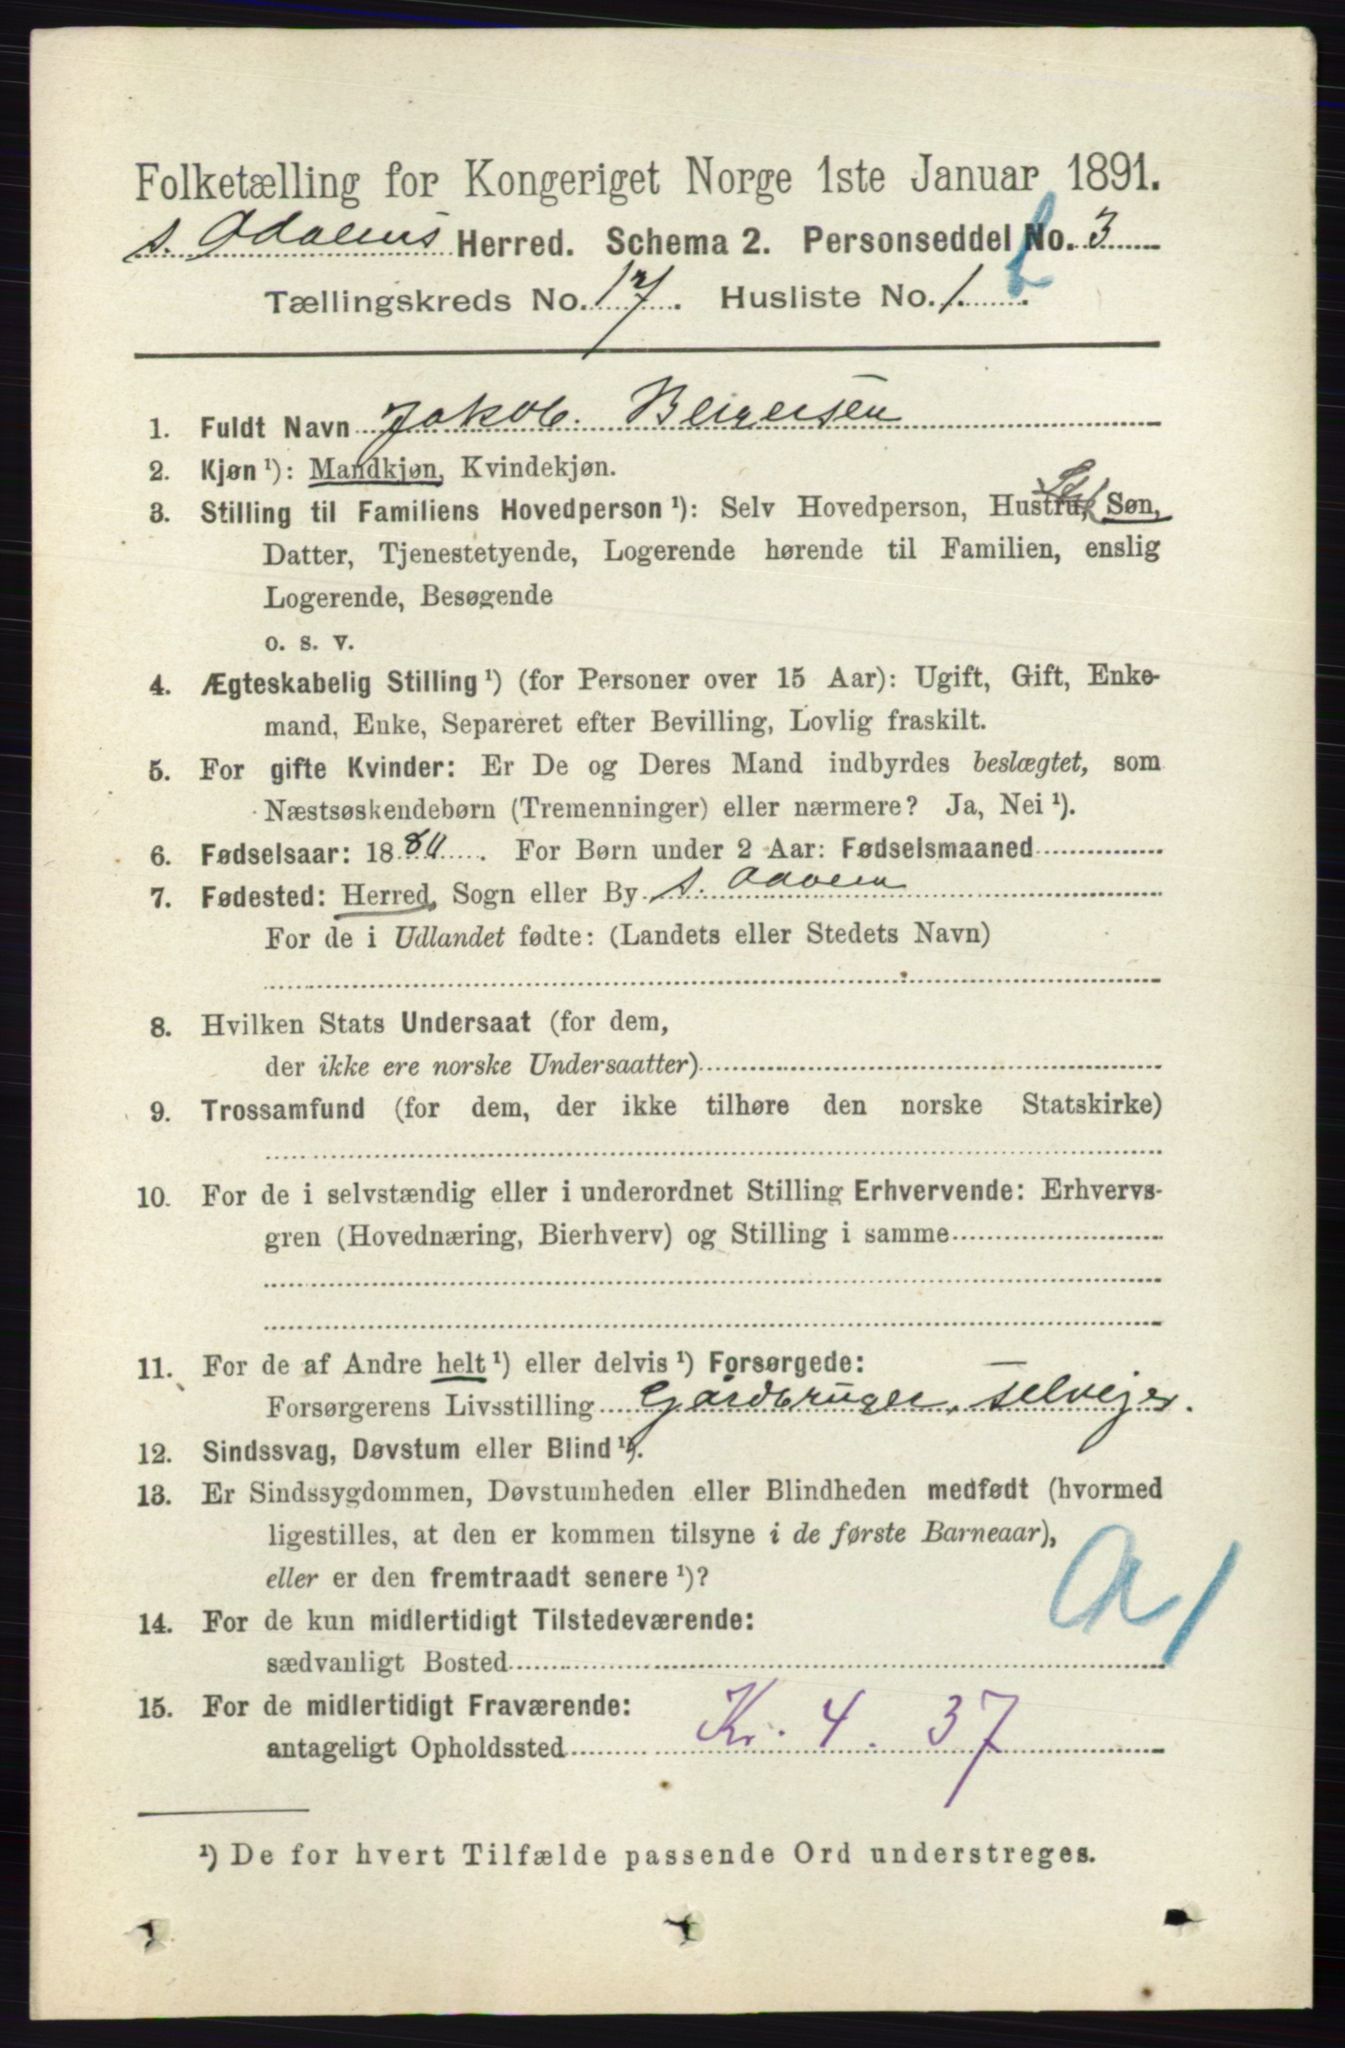 Folketælling for Kongeriget Norge 1ste Januar 1891.
s. Odalens Herred. Schema 2. Personseddel No. 3
Tællingskreds No. 17. Husliste No. 1.
1. Fuldt Navn Jakob. Beigersen
2. Kjøn¹): Mandkjøn, Kvindekjøn.
3. Stilling til Familiens Hovedperson¹): Selv Hovedperson, Hustru, Søn,
Datter, Tjenestetyende, Logerende hørende til Familien, enslig
Logerende, Besøgende
o. s. v.
4. Ægteskabelig Stilling¹) (for Personer over 15 Aar): Ugift, Gift, Enke-
mand, Enke, Separeret efter Bevilling, Lovlig fraskilt.
5. For gifte Kvinder: Er De og Deres Mand indbyrdes beslægtet, som
Næstsøskendebørn (Tremenninger) eller nærmere? Ja, Nei¹).
6. Fødselsaar: 1880. For Børn under 2 Aar: Fødselsmaaned
7. Fødested: Herred, Sogn eller By s. Odalen
For de i Udlandet fødte: (Landets eller Stedets Navn)
8. Hvilken Stats Undersaat (for dem,
der ikke ere norske Undersaatter)
9. Trossamfund (for dem, der ikke tilhøre den norske Statskirke)
10. For de i selvstændig eller i underordnet Stilling Erhvervende: Erhvervs-
gren (Hovednæring, Bierhverv) og Stilling i samme
11. For de af Andre helt¹) eller delvis¹) Forsørgede:
Forsørgerens Livsstilling Gårdbruger, selvejer.
12. Sindssvag, Døvstum eller Blind¹).
13. Er Sindssygdommen, Døvstumheden eller Blindheden medfødt (hvormed
ligestilles, at den er kommen tilsyne i de første Barneaar),
eller er den fremtraadt senere¹)?
14. For de kun midlertidigt Tilstedeværende:
sædvanligt Bosted
15. For de midlertidigt Fraværende:
antageligt Opholdssted Kr. 4. 37
¹) De for hvert Tilfælde passende Ord understreges.